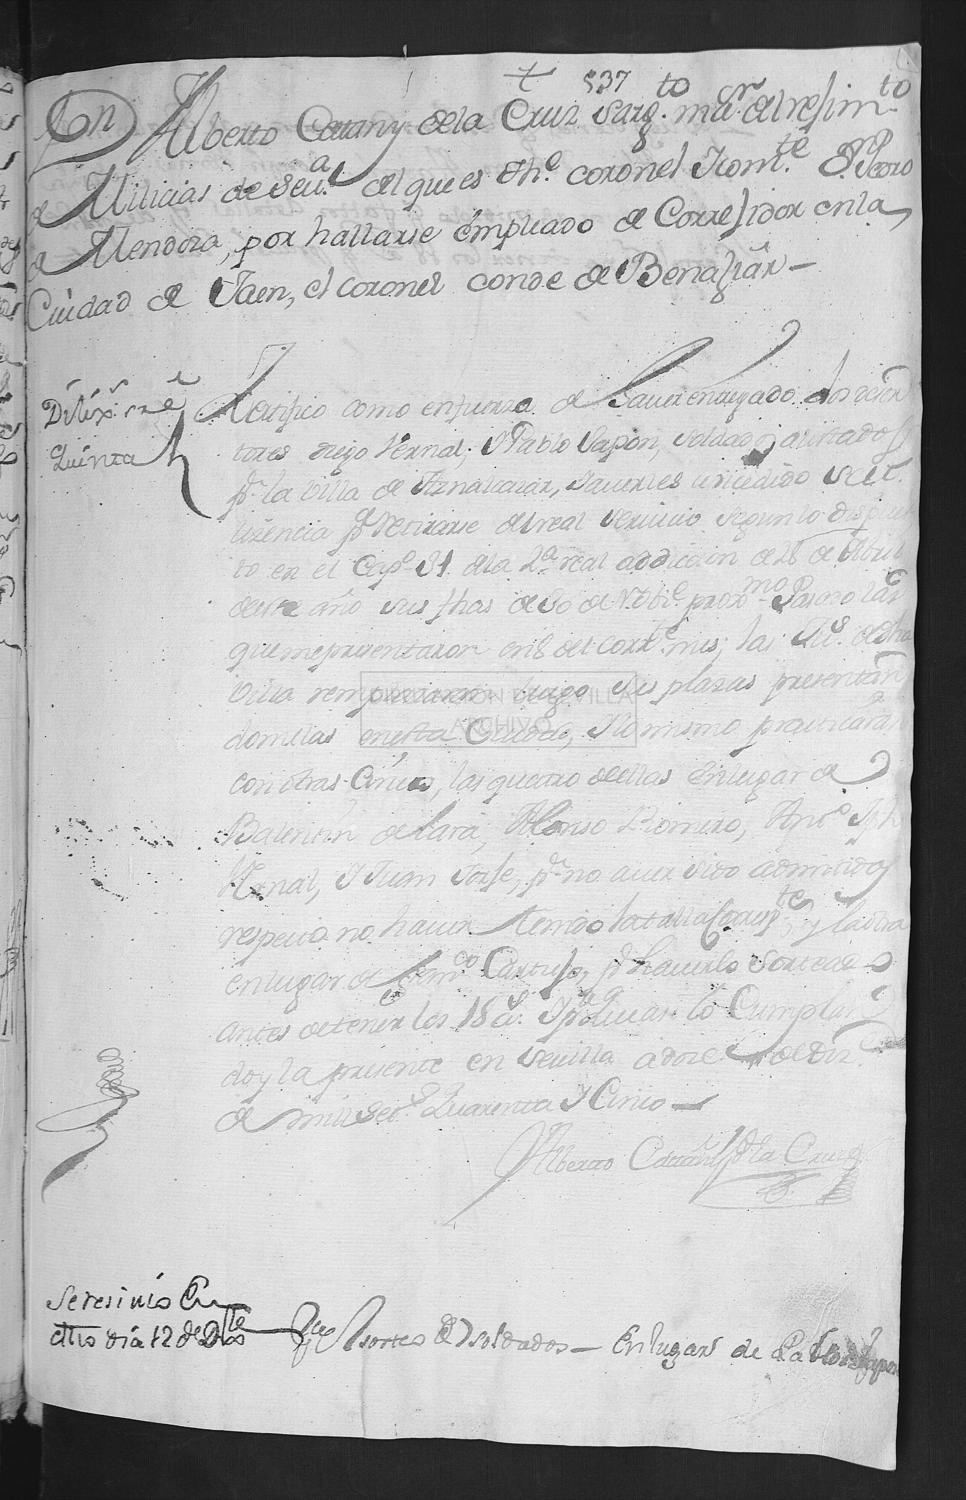 537
Dn Alberto Cattany de la Cruz Sargto mor del reximto
de Milicias de Seva del que es Thte coronel y Comte Dn Pedro
de Mendoza, por hallarse émpleado de Correjidor en la
Ciudad de Jaen, el coronel conde de Benajiar
Quinta
Zertifico como en fuerza de haver entregado los
tores Diego Vernal, y Pablo Japon, soldados alistados
pr la Villa de Aznalcazar, y averles concedido
lizencia pa Retirarse del real servicio segun lo dispues
to en el Capo 31 dela 2a real addicion de 28 de Abril
de este año sus fhas de 30 de Nobre proxmo Pasado las
que me presentaron en 8 del corrte mes; las Jus. de dha
Villa remplazaron luego sus plazas presentan
domelas en esta Ciudad, y lo mismo practicaran
con otras Cinco, las quatro de ellas en lugar de
Balentin de Lara, Alonso Romero, Anto Jph
Vernal, y Juan Jorje, pr no aver sido admitidos
respecto no haver tenido la talla y la otra
en lugar de Franco pr haverlo sorteado
antes de tener los 18 as. Y pa que lo Cumplan
doy la presente en Sevilla a doze de Dizre
de mill Setes. Quarenta y Cinco
Alberto Cattany de la Cruz
DIPUTACION DE SEVILLA
ARCHIVO
Se resivio En
dho dia 12 de Dre sorteo de soldados en lugar de Pablo Japon